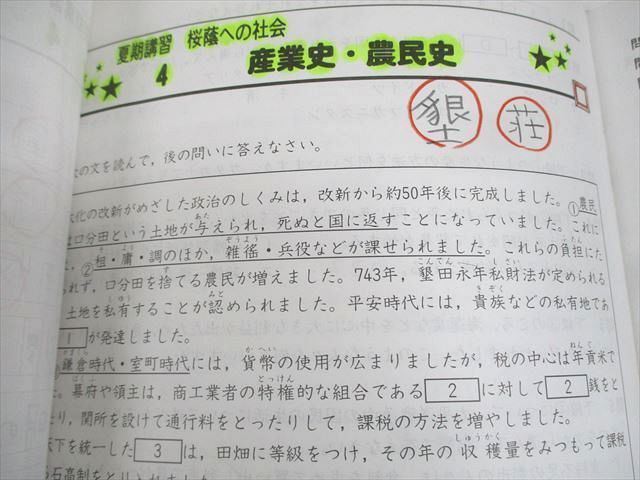 夏期講習 桜蔭への社会
4 産業史・農民史
墾 荘
の文を読んで，後の問いに答えなさい。
化の改新がめざした政治のしくみは，改新から約50年後に完成しました。①農民
は口分田という土地が与えられ，死ぬと国に返すことになっていました。これに
，②租・庸・調のほか，雑徭・兵役などが課せられました。これらの負担にた
られず，口分田を捨てる農民が増えました。743年，墾田永年私財法が定められ
土地を私有することが認められました。平安時代には，貴族などの私有地であ
1が発達しました。
鎌倉時代・室町時代には，貨幣の使用が広まりましたが，税の中心は年貢米で
た。幕府や領主は，商工業者の特権的な組合である 2 に対して 2 銭をと
たり，関所を設けて通行料をとったりして，課税の方法を増やしました。
天下を統一した 3 は，田畑に等級をつけ，その年の収穫量をみつもって課税
る石高制をとりました。